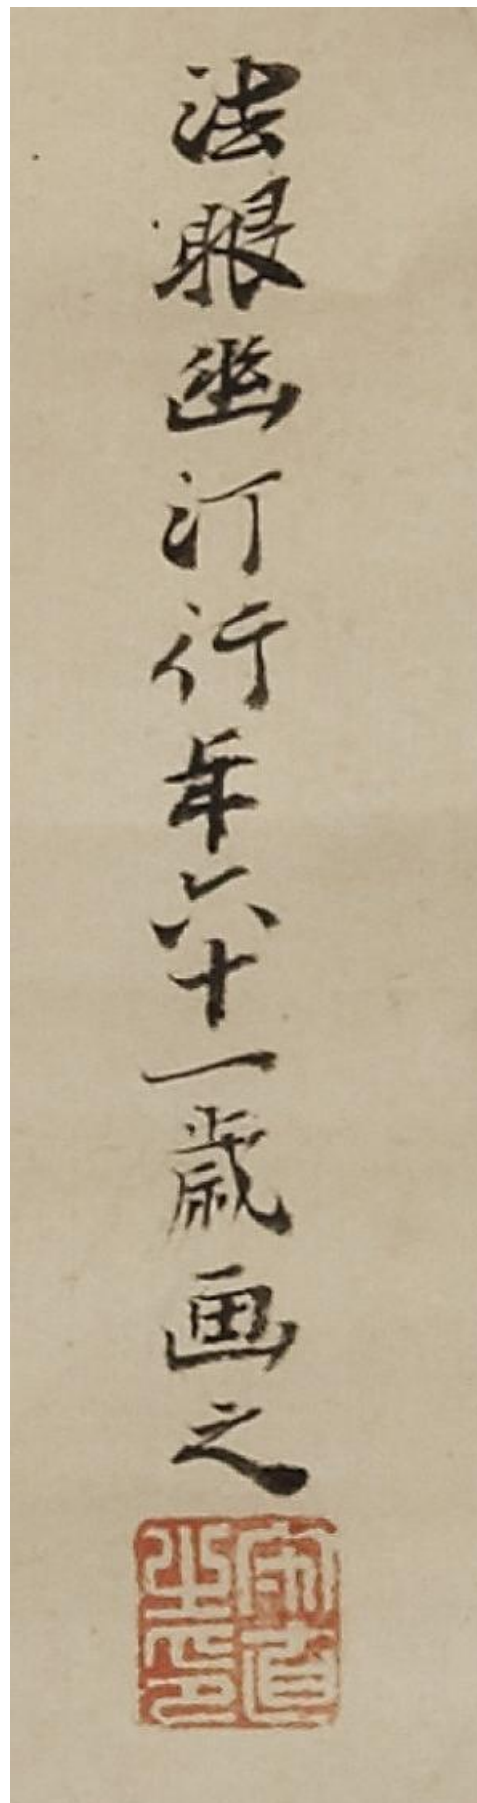 法眼幽汀行年六十一歳画之
守直之印